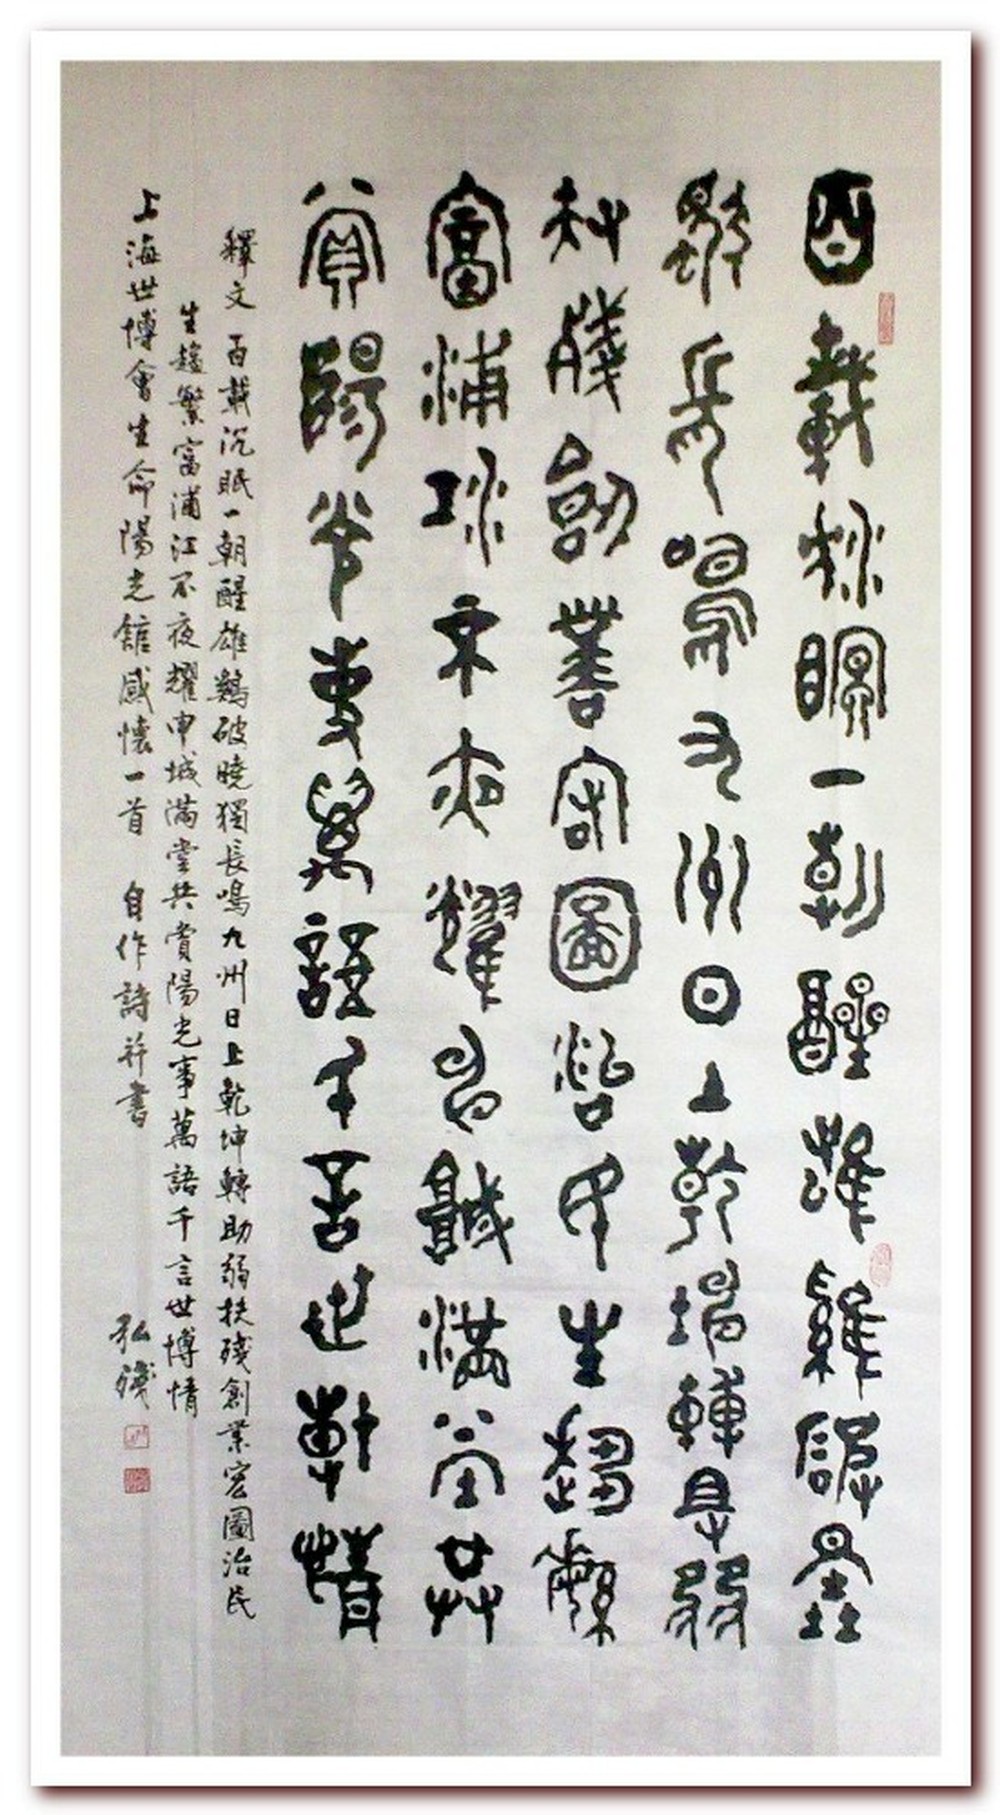 百載沉眠一朝醒雄鷄破曉
獨長鳴九州日上乾坤轉助弱
扶殘創業宏圖治民生趨繁
富浦江不夜耀申城滿堂共
賞陽光事萬語千言世博情
釋文 百載沉眠一朝醒雄鷄破曉獨長鳴九州日上乾坤轉助弱扶殘創業宏圖治民
生趨繁富浦江不夜耀申城滿堂共賞陽光事萬語千言世博情
上海世博會生命陽光館感懷一首 自作詩并書 弘